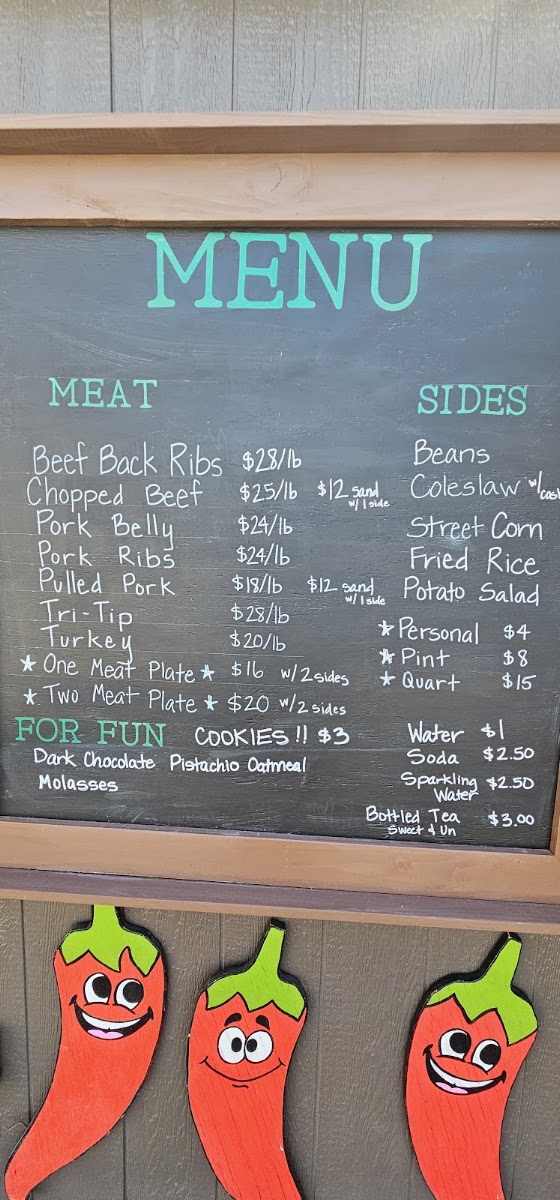 MENU
MEAT
Beef Back Ribs $28/lb
Chopped Beef $25/lb $12 sand w/1 side
Pork Belly $24/lb
Pork Ribs $24/lb
Pulled Pork $18/lb $12 sand w/1 side
Tri-Tip $28/lb
Turkey $20/lb
★ One Meat Plate ★ $16 w/2 sides
★ Two Meat Plate ★ $20 w/2 sides
FOR FUN COOKIES !! $3
Dark Chocolate Pistachio Oatmeal
Molasses
SIDES
Beans
Coleslaw
Street Corn
Fried Rice
Potato Salad
★ Personal $4
★ Pint $8
★ Quart $15
Water $1
Soda $2.50
Sparkling Water $2.50
Bottled Tea $3.00
Sweet & Un